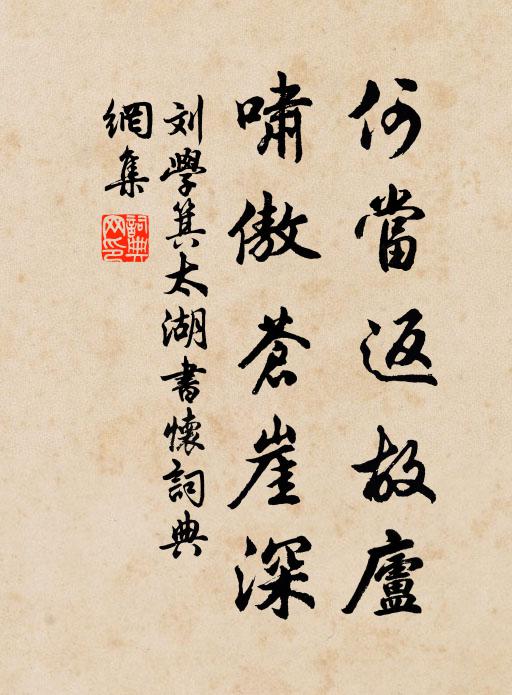 何當返故廬
嘯傲蒼崖深
刘學箕太湖書懷詞典
網集
詞典
网印